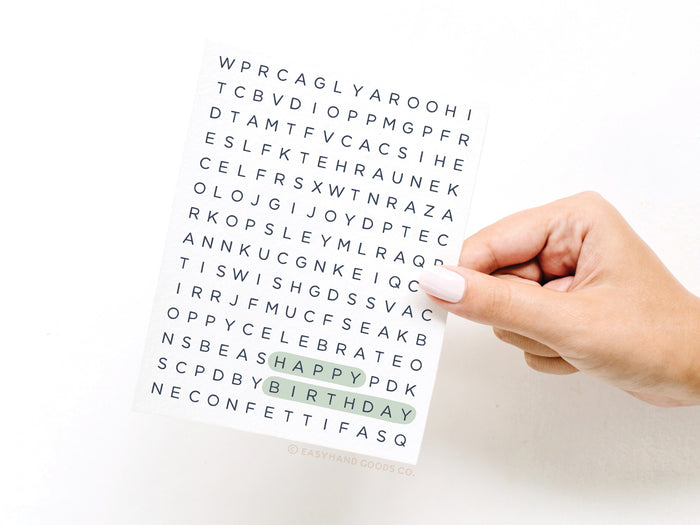 WPRCAGLYAROOHI
TCBVDIOPPMGPFR
DTAMTFVCACSIHE
ESLFKTEHRAUNEK
CELFRSXWTNRAZA
OLOJGIJOYDPTEC
RKOPSLEYMLRAQR
ANNKUCGNKEIQC
TISWISHGDSSVAC
IRRJFMUCFSEAKB
OPPYCELEBRATEO
NSBEASHAPPYPDK
SCPDBYBIRTHDAY
NECONFETTIFASQ
© EASYHAND GOODS CO.